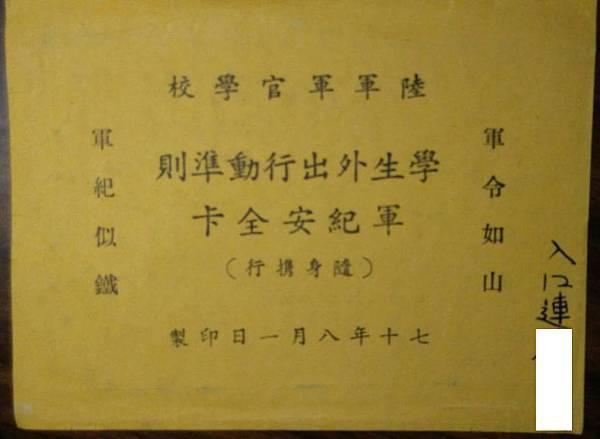 陸軍軍官學校
學生外出行動準則
軍紀安全卡
(隨身携行)
七十年八月一日印製
軍令如山
軍紀似鐵
入口連